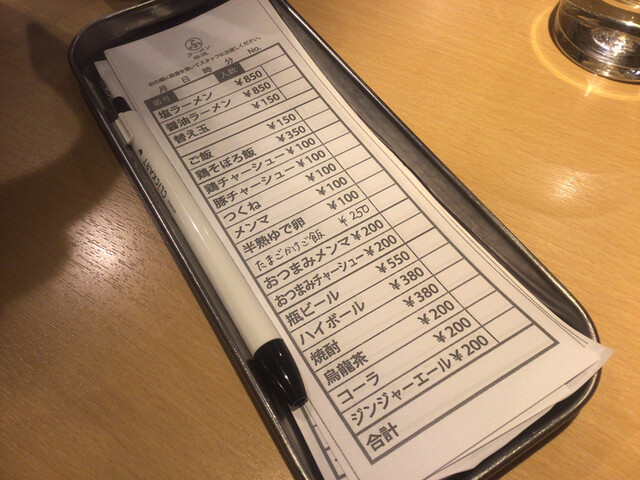 ラーメン
右の欄に数量を書いてスタッフにお渡しください。
月 日 時 分 No.
人数
塩ラーメン ¥850
醤油ラーメン ¥850
替え玉 ¥150
ご飯 ¥150
鶏そぼろ飯 ¥350
鶏チャーシュー ¥100
豚チャーシュー ¥100
つくね ¥100
メンマ ¥100
半熟ゆで卵 ¥100
たまごかけご飯 ¥250
おつまみメンマ ¥200
おつまみチャーシュー ¥200
瓶ビール ¥550
ハイボール ¥380
焼酎 ¥380
烏龍茶 ¥200
コーラ ¥200
ジンジャーエール ¥200
合計
CLICKART